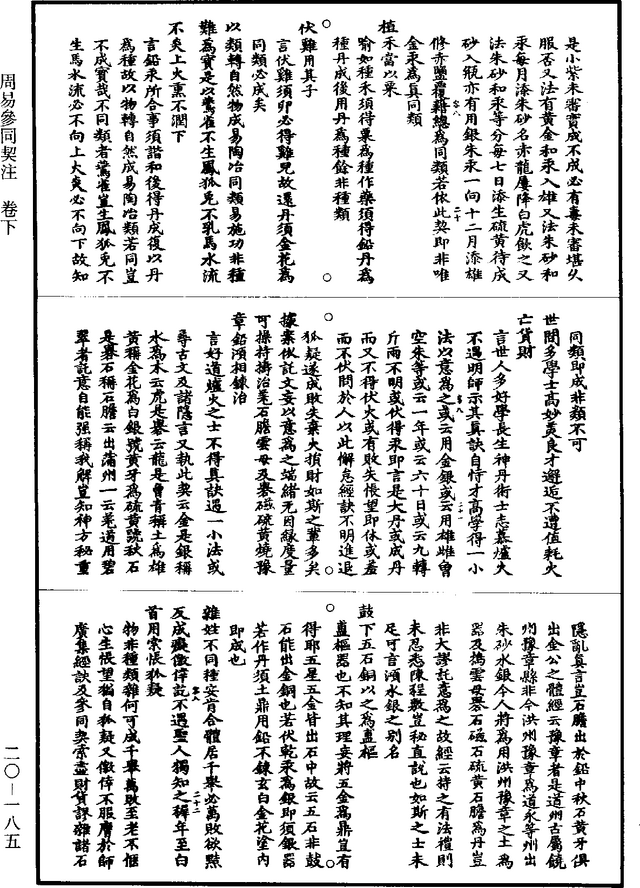 周易參同契注　卷下
二〇—一八五
是小紫未審實成不成必有毒未審堪久
服否又法有黃金和汞入雄又法朱砂和
汞每月添朱砂名赤龍屢降白虎飲之又
法朱砂和汞等分每七日添生硫黃待成
砂入瓶亦有用銀朱汞一向十二月添雄
修赤鹽覆藉總為同類若依此契即非唯
金汞為真同類
植禾當以粟
喻如種禾須得粟為種作藥須得鉛丹為
種丹成後用丹為種餘非種類
伏雞用其子
言伏雞須卵必得雞兒故還丹須金花為
同類必成矣
以類轉自然物成易陶冶同類易施功非種
難為寶是以鷰雀不生鳳狐兔不乳馬水流
不炎上火熏不潤下
言鉛汞所合事須諧和後得丹成復以丹
為種故以物轉自然成易陶冶類若同豈
不成寶哉不同類者鷰雀豈生鳳狐兔不
生馬水流必不向上火炎必不向下故知
同類即成非類不可
世間多學士高妙美良才邂逅不遭值耗火
亡貨財
言世人多好學長生神丹術士志慕爐火
不遇明師示其真訣自恃才高學得一小
法以意為之或云用金銀或云用雄雌曾
空朱等或云一年或云六十日或云九轉
斤兩不明或伏得汞即言是大丹或成丹
而又不得伏火或有敗失悵望即休或羞
而不伏問於人以此懈怠經訣不明進退
狐疑遂成敗失棄大損財如斯之輩多矣
據案依託文妄以意為之端緒无因緣度量
可操持擣治羗石膽雲母及礬磁硫黃燒豫
章鉛澒相鍊治
言好道爐火之士不得真訣遇一小法或
尋古文及諸隱言又執此契云金是銀稱
水為木云虎是礬云龍是曾青稱土為雄
黃稱金花為白銀號黃牙為硫黃號秋石
是礬石稱石膽云出蒲州一云羗道用碧
翠者託意自能强稱我解豈知神方秘重
隱亂真言豈石膽出於鉛中秋石黃牙俱
出金公之體經云豫章者是道州古屬鏡
州豫章縣非今洪州豫章為道永等州出
朱砂水銀今人將為用洪州豫章之土為
器及擣雲母礬石磁石硫黃石膽為丹豈
非大謬託意為之故經云持之有法禮則
未忍悉陳程數豈秘直說也如斯之士未
足可言澒水銀之別名
鼓下五石銅以之為葢樞
葢樞器也不知其理妄將五金為鼎豈有
得耶五星五金皆出石中故云五石非鼓
石能出金銅也若伏乾汞為銀即須銀器
若作丹須土鼎用鉛不鍊玄白金花塗內
即成也
雜姓不同種安肯合體居千舉必萬敗欲黠
反成癡僥倖託不遇聖人獨知之稺年至白
首用索悵狐疑
物非種類雜何可成千舉萬敗至老不愜
心生悵望猶自狐疑又僥倖不服膺於師
廣集經訣及參同契索盡財貨謬雜諸石